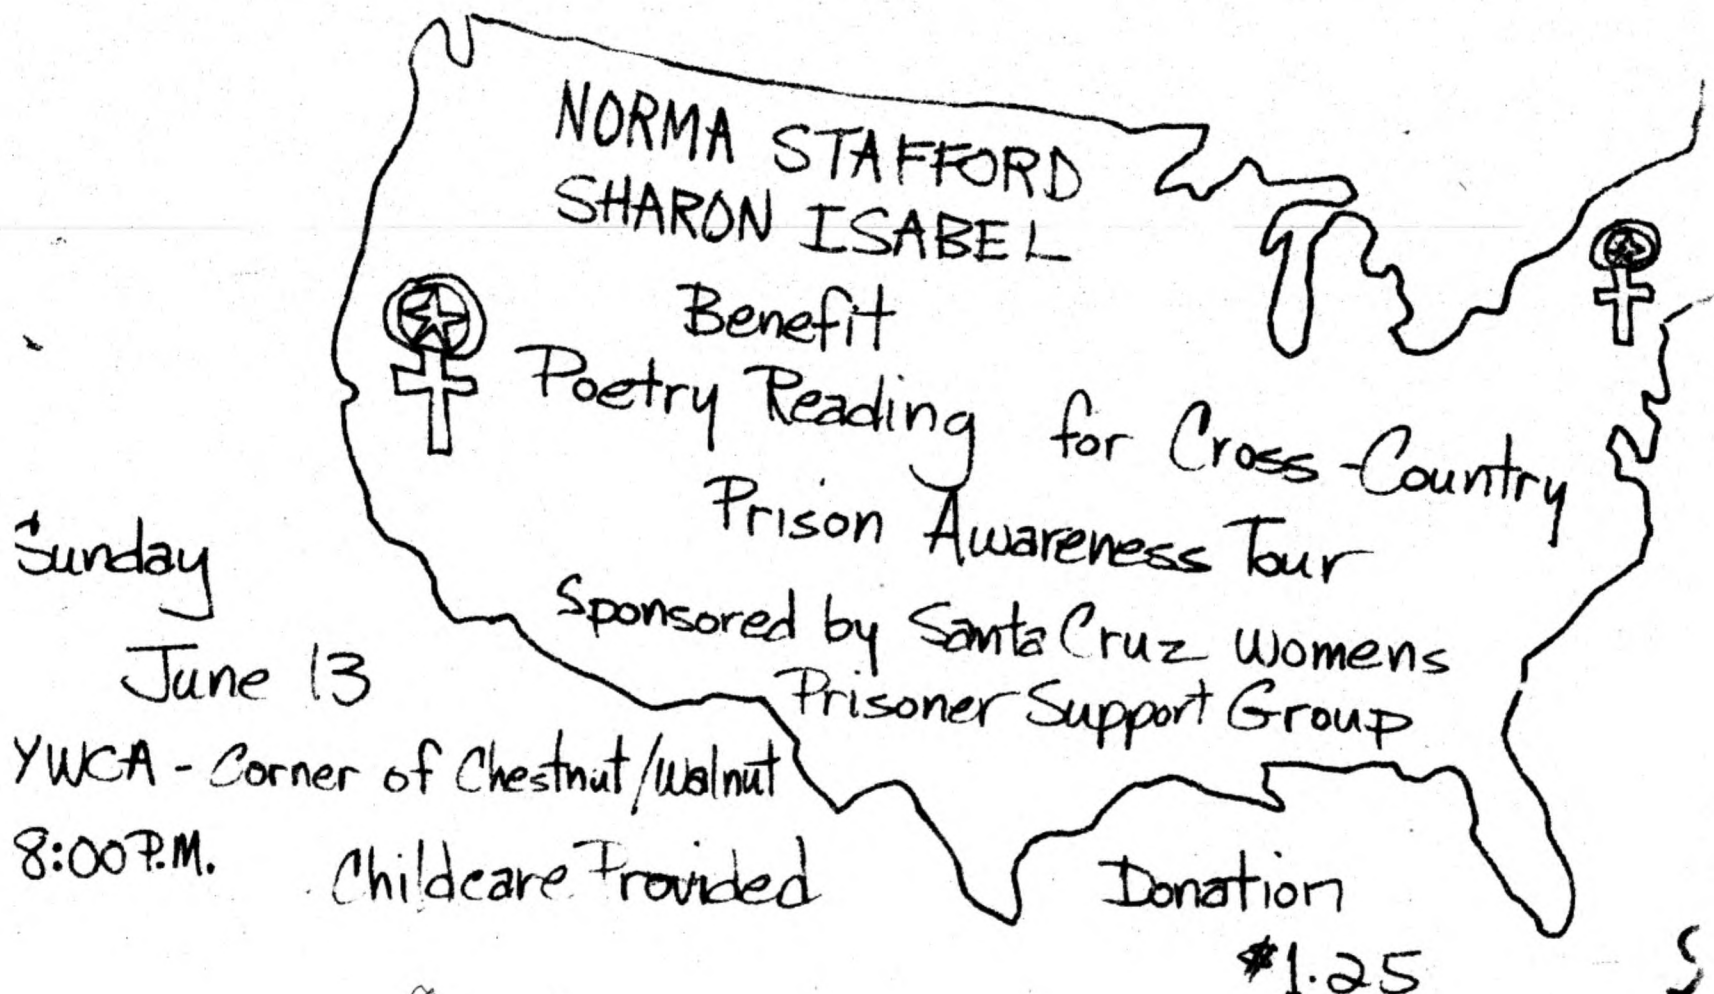 NORMA STAFFORD
SHARON ISABEL
Benefit
Poetry Reading for Cross-Country
Prison Awareness Tour
Sponsored by Santa Cruz Womens
Prisoner Support Group
Sunday
June 13
YWCA - Corner of Chestnut/Walnut
8:00 P.M. Childcare Provided
Donation
$1.25